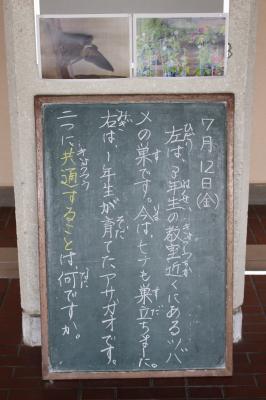 7月12日(金)
左は、3年生の教室近くにあるツバ
メの巣です。今は、ヒナも巣立ちました。
右は、1年生が育てたアサガオです。
二つに共通することは何ですか。